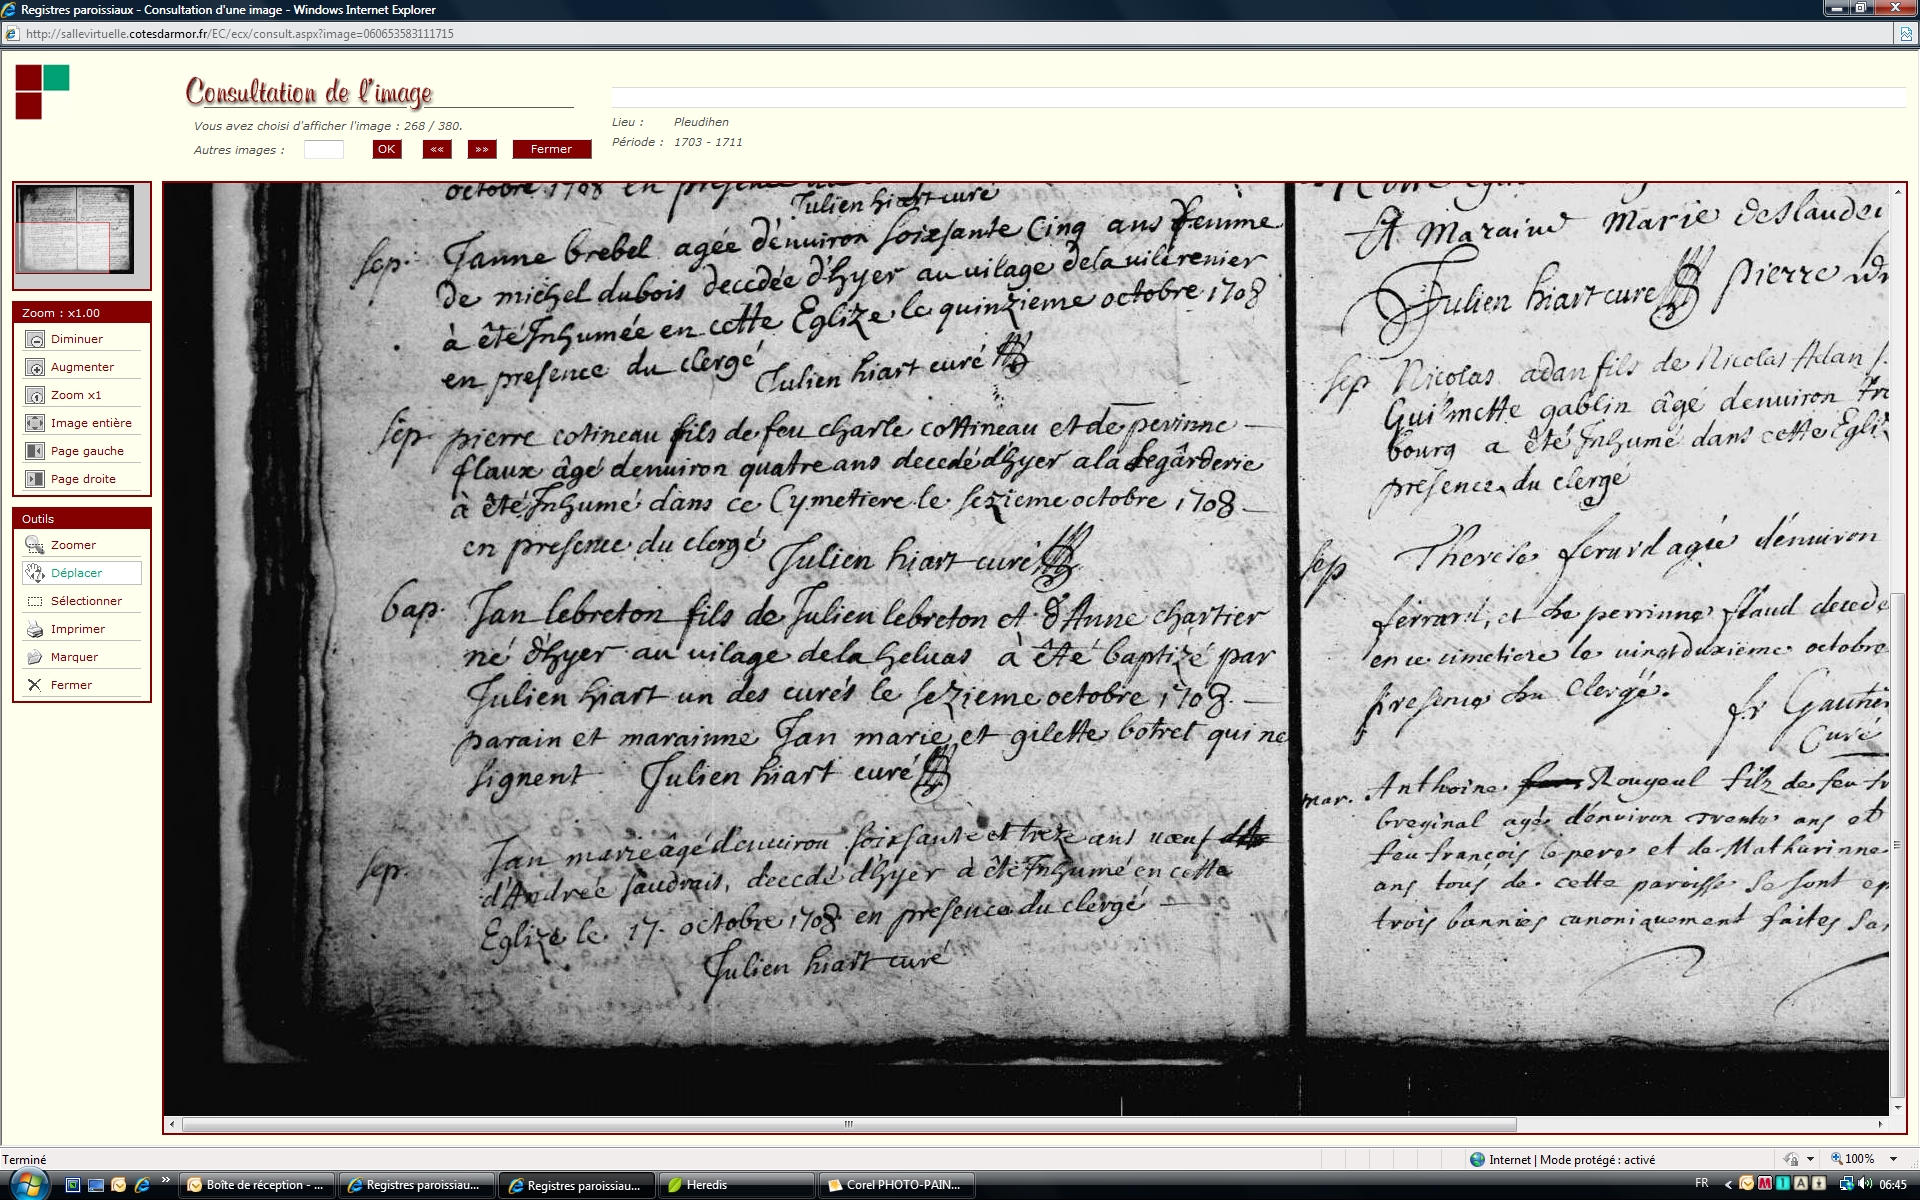 Registres paroissiaux - Consultation d'une image - Windows Internet Explorer
http://sallevirtuelle.cotesdarmor.fr/EC/ecx/consult.aspx?image=060653583111715
Consultation de l'image
Vous avez choisi d'afficher l'image : 268 / 380.
Autres images :
OK
««
»»
Fermer
Lieu : Pleudihen
Période : 1703 - 1711
Zoom : x1.00
Diminuer
Augmenter
Zoom x1
Image entière
Page gauche
Page droite
Outils
Zoomer
Déplacer
Sélectionner
Imprimer
Marquer
Fermer
octobre 1708 en presence du
Julien hiart curé
sep. Janne brebel agée d'enuiron soixsante Cinq ans femme
de michel dubois decedée d'hyer au vilage dela vile renier
à été Inhumée en cette Eglize le quinzieme octobre 1708
en presence du clergé Julien hiart curé
sep. pierre cotineau fils de feu charle cottineau et de perinne
flaux âgé denuiron quatre ans decedé d'hyer a la Regârderie
à été Inhumé dans ce Cymetiere le sezieme octobre 1708
en presence du clergé Julien hiart curé
bap. Jan lebreton fils de Julien lebreton et d'Anne chartier
né d'hyer au vilage dela heluas à été baptizé par
Julien hiart un des curés le sezieme octobre 1708.
parain et marainne Jan marie et gilette botrel qui ne
signent Julien hiart curé
sep. Jan marie âgé d'enuiron soixsante et treze ans uoeuf
d'Andrée saudrais, decedé d'hyer à été Inhumé en cette
Eglize le 17. octobre 1708 en presence du clergé
Julien hiart curé
Et Maraine Marie deslandes
Julien hiart curé pierre
sep Nicolas adan fils de Nicolas Adan
Guilmette gablin âgé denuiron
bourg a été Inhumé dans cette Egli
presence du clergé
sep Therese ferard agée d'énuiron
ferrard, et de perrinne flaud decede
en ce cimetiere le vingt duxiéme octobre
presence du Clergé. fr Gautier
Curé
mar. Anthoine Rougeul filz de feu
breginal agé d'énuiron trente ans et
feu françois le pere et de Mathurinne
ans tous de cette paroisse se sont
trois bannies canoniquement faites
Terminé
Internet | Mode protégé : activé
100%
Boîte de réception - ...
Registres paroissiau...
Registres paroissiau...
Heredis
Corel PHOTO-PAIN...
FR
06:45